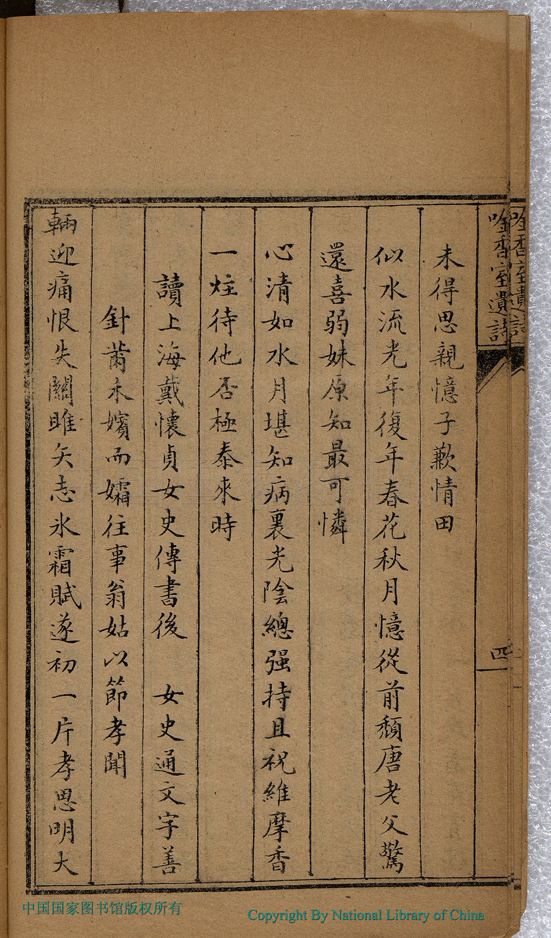 吟香室遺詩
四
未得思親憶子歉情田
似水流光年復年春花秋月憶從前頹唐老父驚
還喜弱妹原知最可憐
心清如水月堪知病裏光陰總强持且祝維摩香
一炷待他否極泰來時
讀上海戴懷貞女史傳書後 女史通文字善
針黹未嬪而孀往事翁姑以節孝聞
輛迎痛恨失關雎矢志氷霜賦遂初一片孝思明大
中国国家图书馆版权所有
Copyright By National Library of China